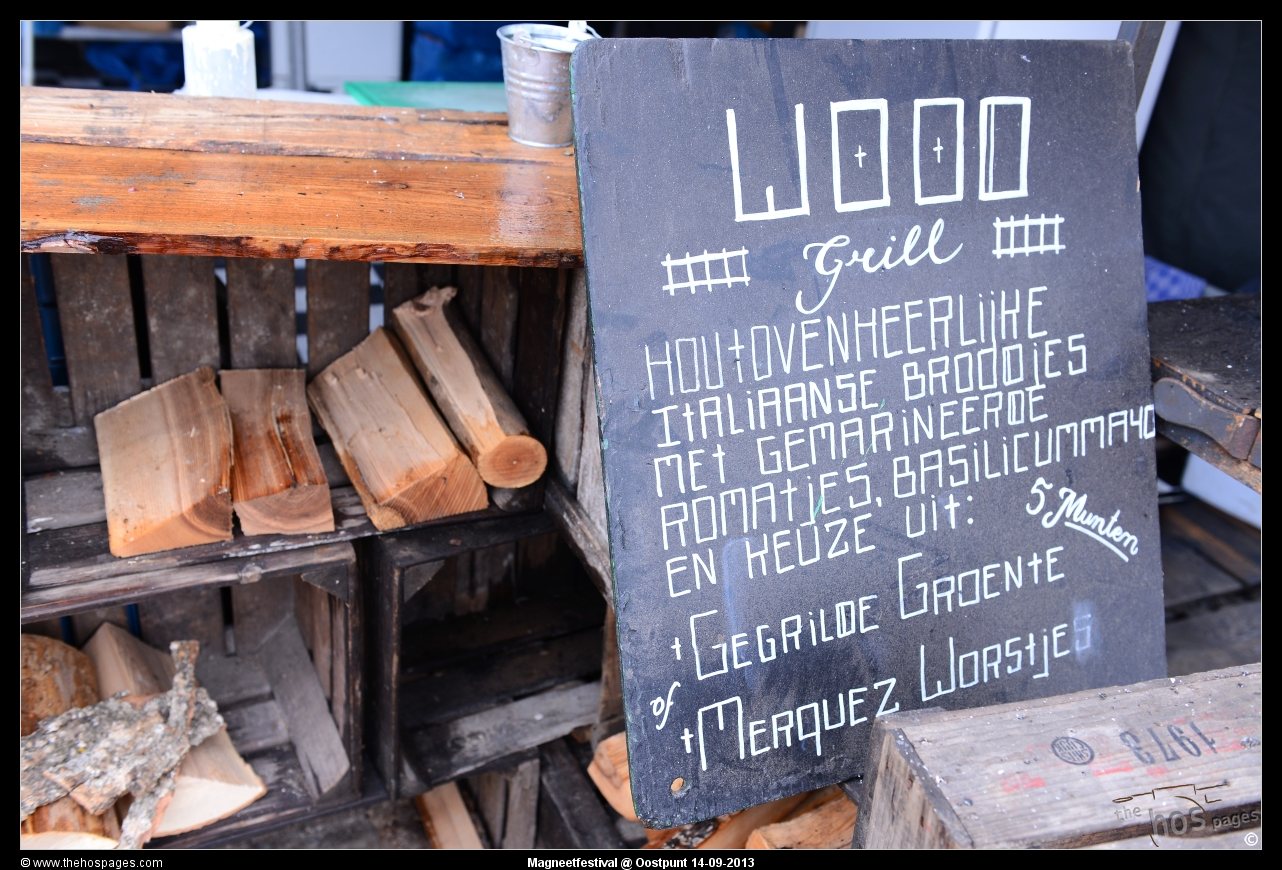 WOOD
Grill
HOUTOVENHEERLIJKE
ITALIAANSE BROODJES
MET GEMARINEERDE
ROMATJES, BASILICUMMAYO
EN KEUZE UIT:
5 Munten
+ GEGRILDE GROENTE
of
+ MERQUEZ WORSTJES
1973
the hos pages
©
© www.thehospages.com
Magneetfestival @ Oostpunt 14-09-2013